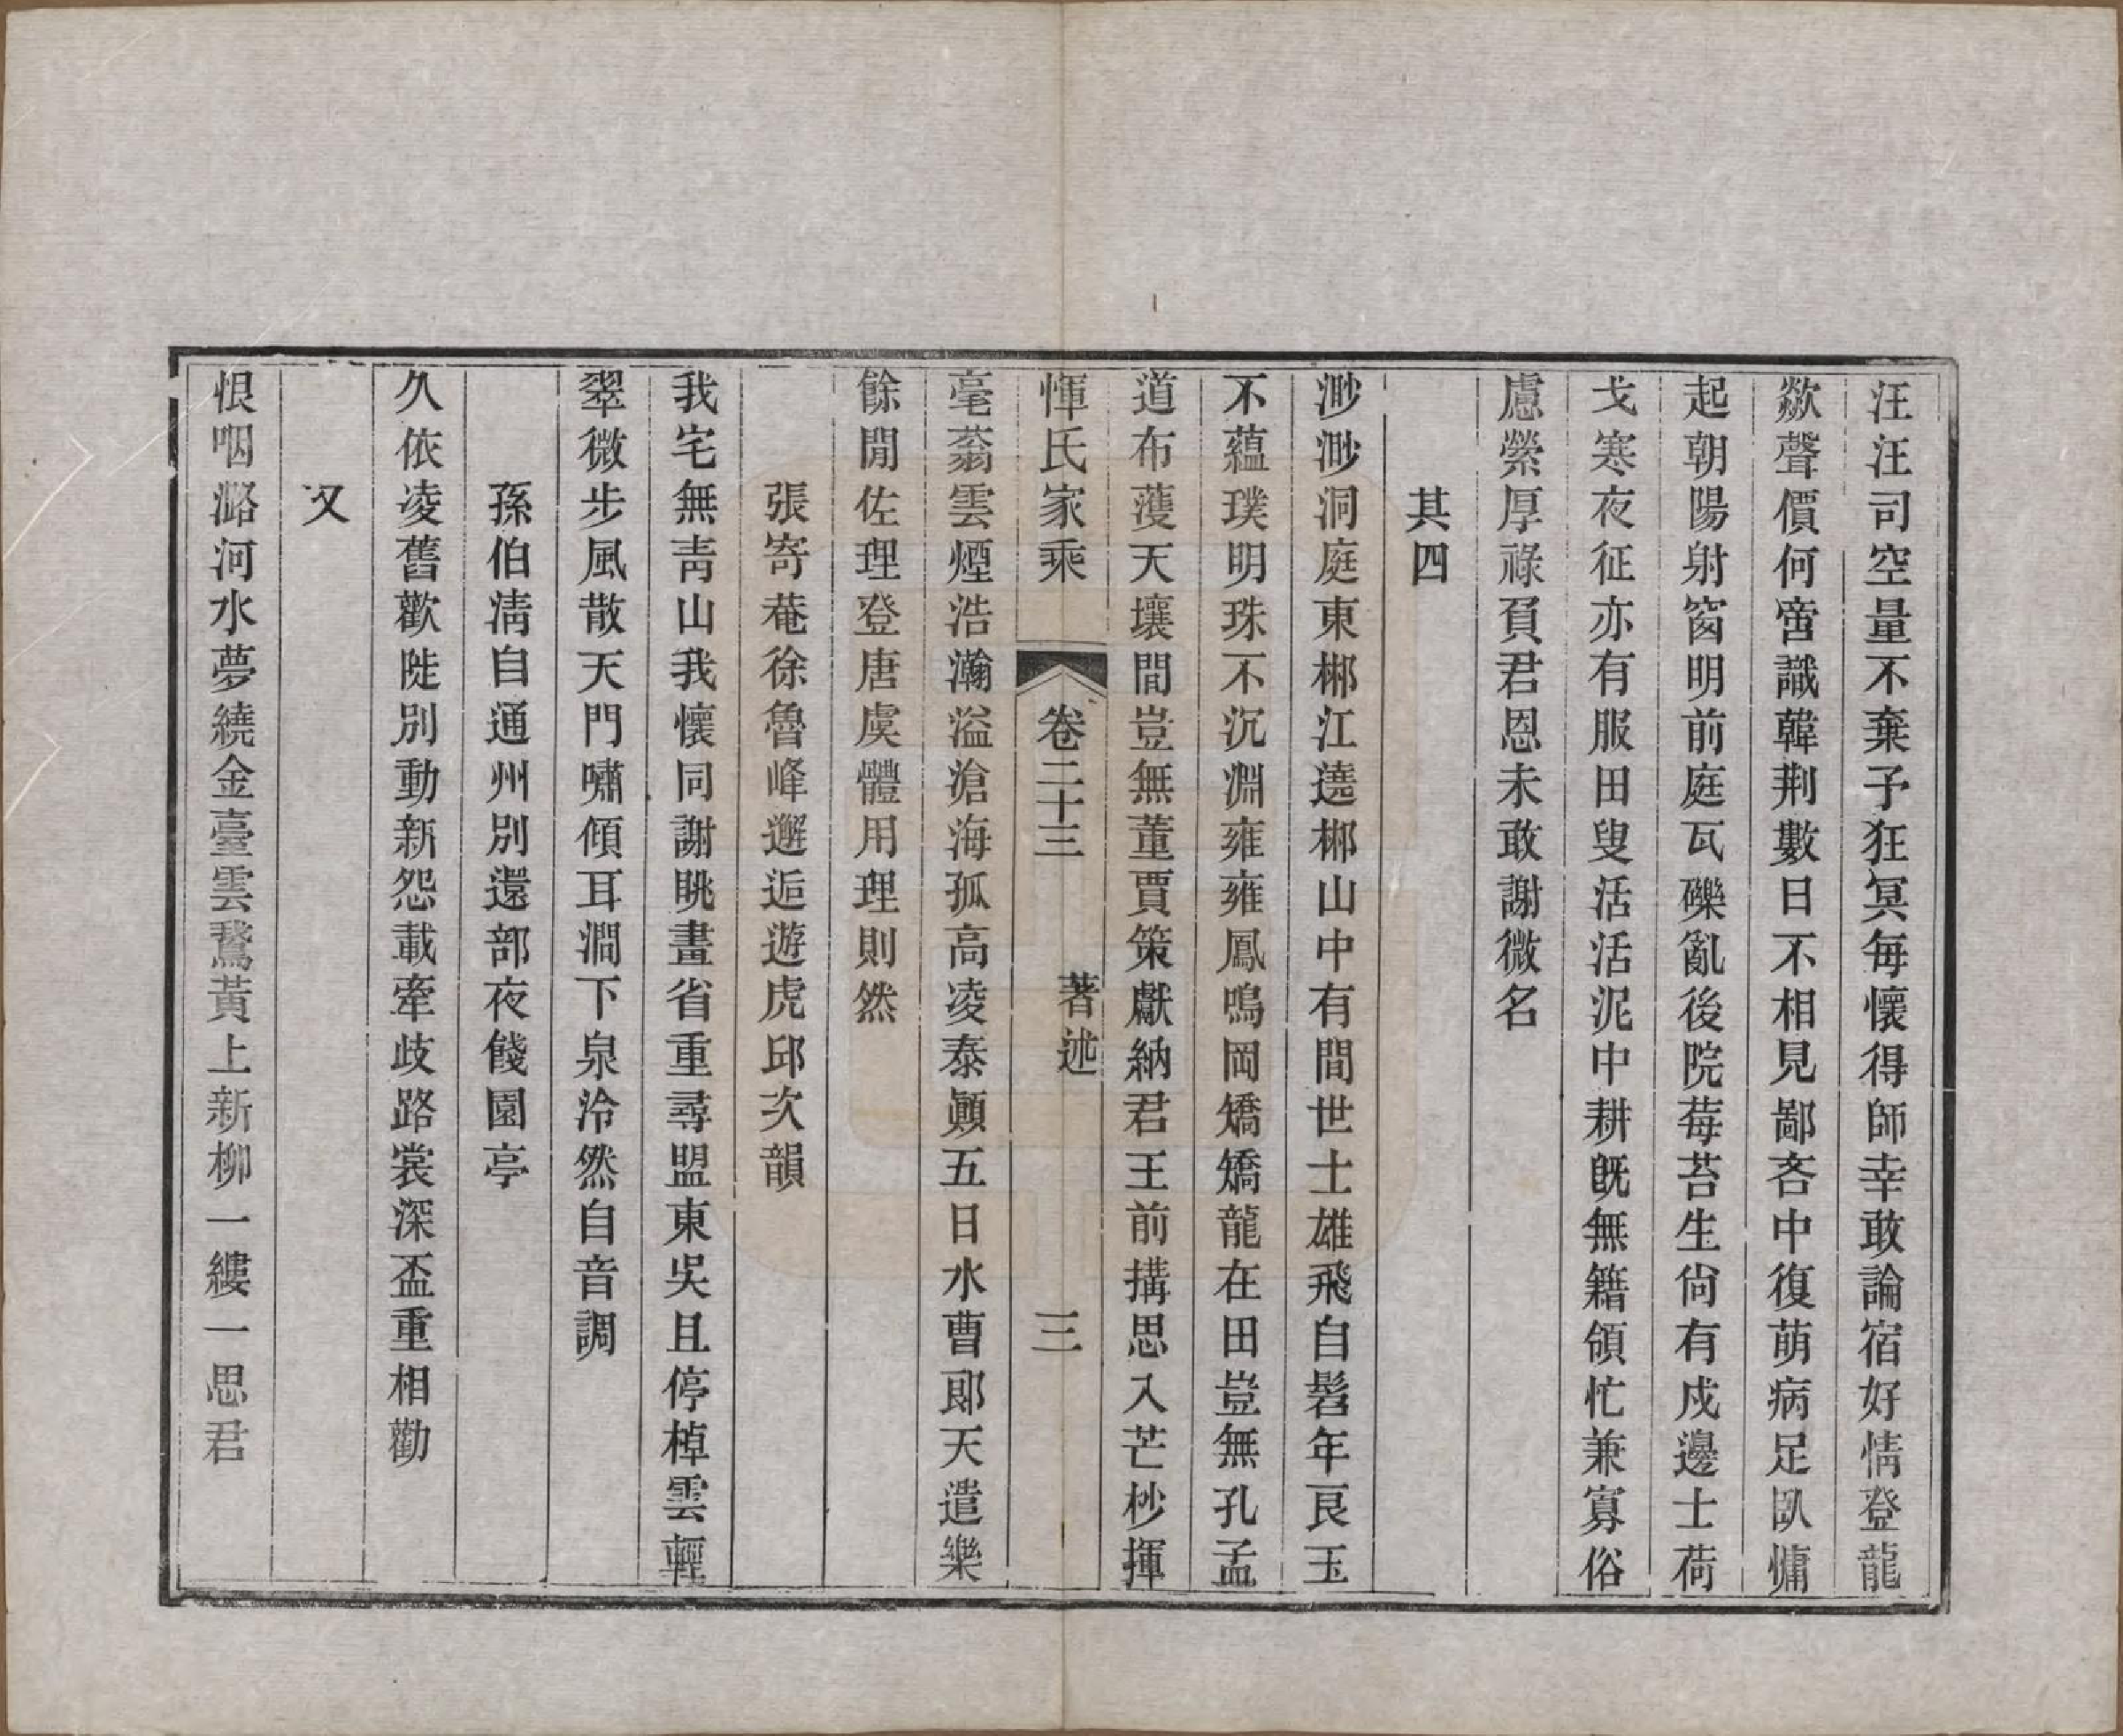 汪汪司空量不棄予狂冥每懷得師幸敢論宿好情登龍
歘聲價何啻識韓荆數日不相見鄙吝中復萌病足臥慵
起朝陽射窗明前庭瓦礫亂後院莓苔生尙有戍邊士荷
戈寒夜征亦有服田叟活活泥中耕旣無籍領忙兼寡俗
慮縈厚祿負君恩未敢謝微名
其四
渺渺洞庭東郴江遶郴山中有間世士雄飛自髫年良玉
不蘊璞明珠不沉淵雍雍鳳鳴岡矯矯龍在田豈無孔孟
道布濩天壤間豈無董賈策獻納君王前搆思入芒杪揮
惲氏家乘 卷二十三 著述 三
毫蓊雲煙浩瀚溢滄海孤高凌泰顚五日水曹郞天遣樂
餘閒佐理登唐虞體用理則然
張寄菴徐魯峰邂逅遊虎邱次韻
我宅無靑山我懷同謝眺畫省重尋盟東吳且停棹雲輕
翠微步風散天門嘯傾耳澗下泉泠然自音調
孫伯淸自通州別還部夜餞園亭
久依凌舊歡陡別動新怨載牽歧路裳深盃重相勸
又
恨咽潞河水夢繞金臺雲鵞黃上新柳一縷一思君